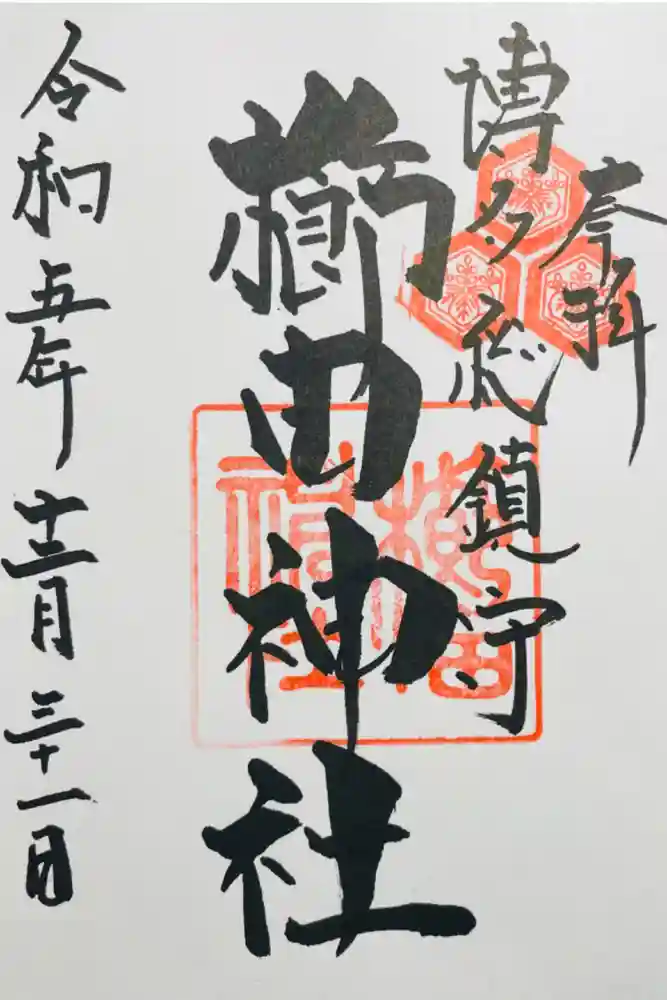 奉拝
博多総鎮守
櫛田神社
令和五年十二月三十一日
櫛田神社